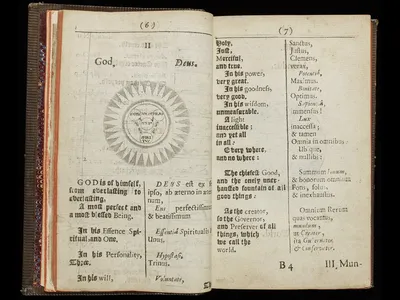 (6)
II
God. Deus.
GOD is of himself, DEUS est ex se
from everlasting to ipso, ab æterno in æter-
everlasting. num,
A most perfect and Ens perfectissimum
a most blessed Being. & beatissimum
In his Essence Spi- Essentiâ Spiritualis
ritual, and One. Unus.
In his Personality, Hypostasi,
Three. Trinus.
In his will, Voluntate,
(7)
Holy, Sanctus,
Just, Justus,
Merciful, Clemens,
and true. verax,
In his power, Potentiâ,
very great. Maximus.
In his goodness, Bonitate,
very good. Optimus.
In his wisdom, Sapientiâ,
unmeasurable. immensus:
A light Lux
inaccessible: inaccessa;
and yet all & tamen
in all: Omnia in omnibus:
Every where. Ubique,
and no where: & nullibi:
The chiefest Good, Summum bonum,
and the onely unex-
hausted fountain of all Fons, solus,
good things: & inexhaustus.
As the creator, Omnium Rerum
so the Governor, quas vocamus,
and Preserver of all mundum,
things, which ut Creator,
we call the ita Gubernator,
world. & Conservator.
B 4 III, Mun-